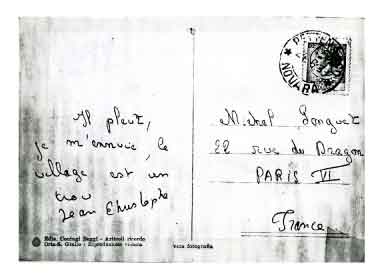 Il pleut,
je m'ennuie, le
village est un
trou
Jean Christophe
Michel Longuet
22 rue du Dragon
PARIS VI
France
NOVARA
Orta-S. Giulio - Riproduzione vietata
vera fotografia